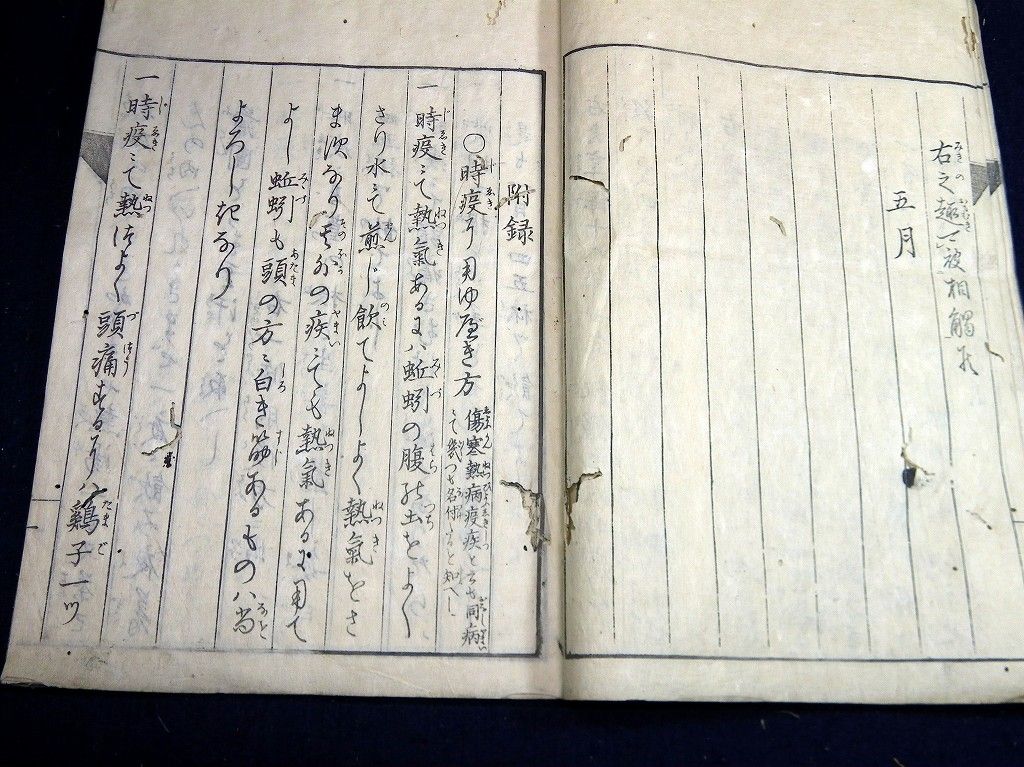 右之趣可被相觸候
五月
附録
○時疫に用ゆべき方 傷寒熱病疫疾といふも同病
にて幾つも名付ると知べし
一 時疫にて熱氣あるには蚯蚓の腹の土をよく
さり水にて煎じ飲てよしよく熱氣をさ
ますなり其外の疾にても熱氣あるに用て
よし蚯蚓も頭の方に白き筋あるもの八
よろしきなり
一 時疫にて熱つよく頭痛するには鶏子一ツ